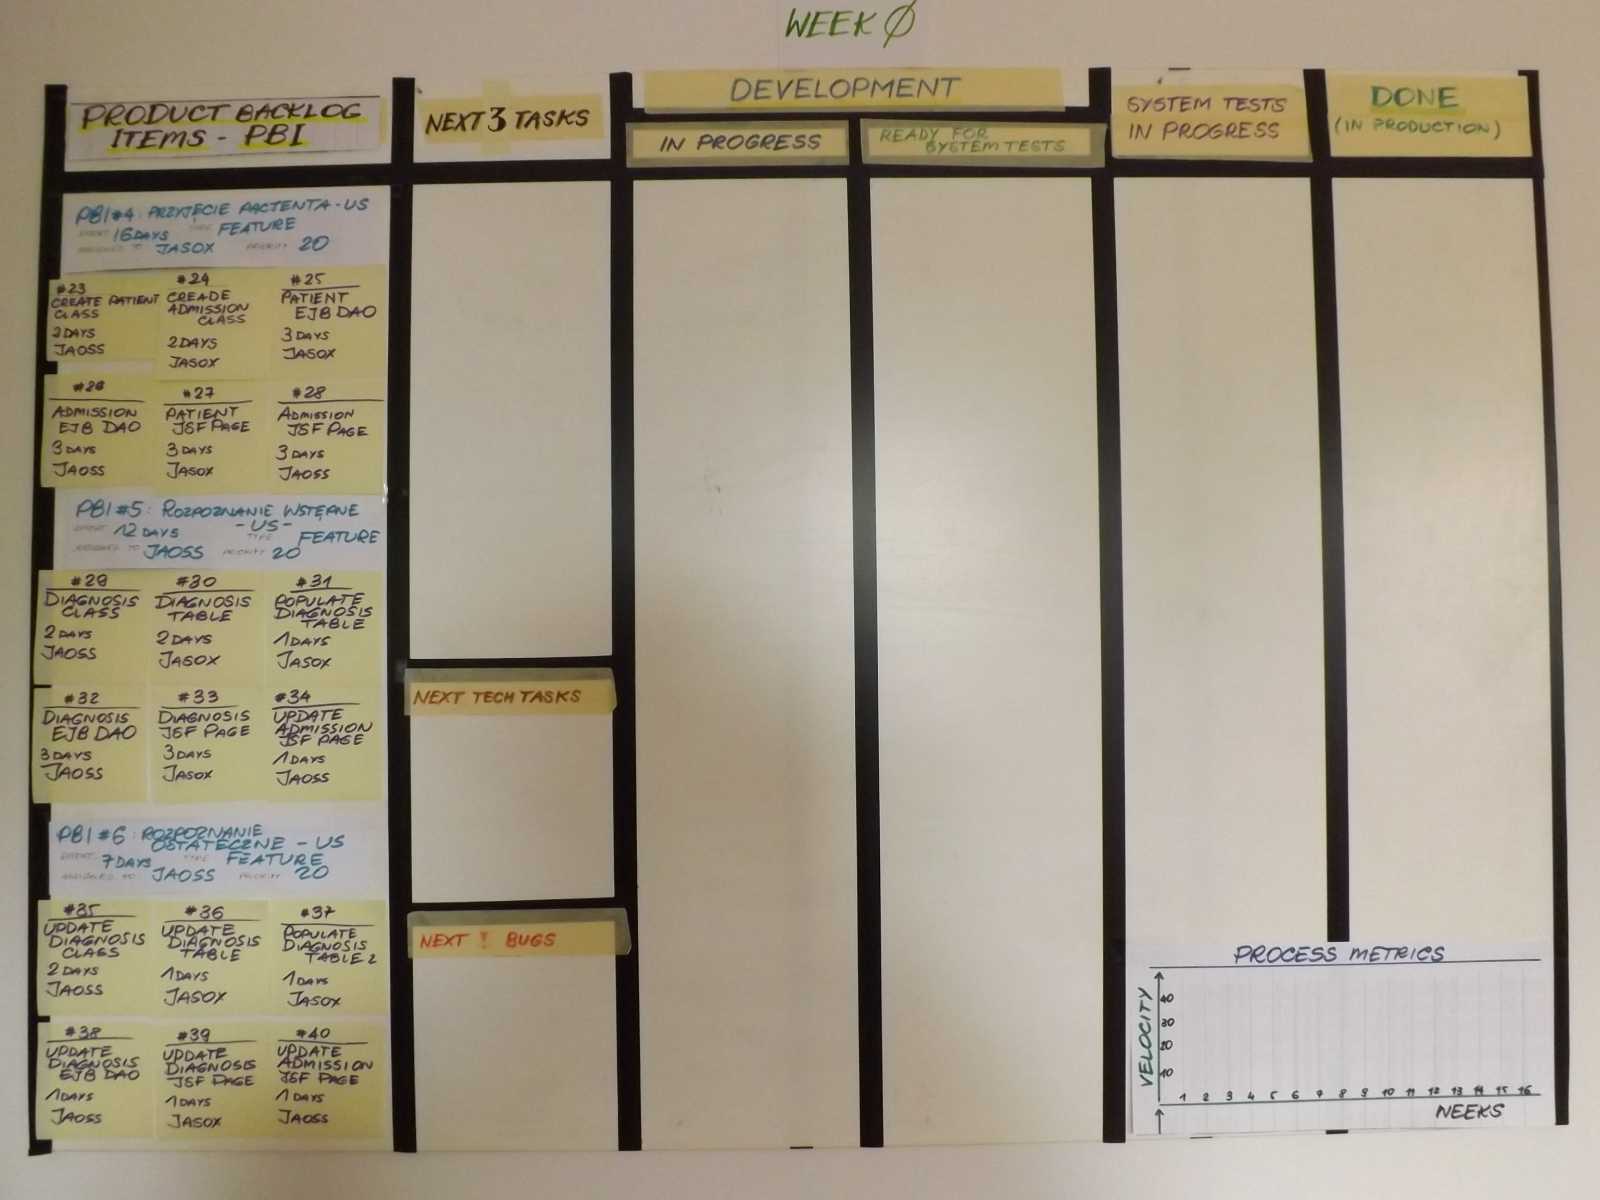 WEEK 0
PRODUCT BACKLOG
ITEMS - PBI
NEXT 3 TASKS
DEVELOPMENT
IN PROGRESS
READY FOR
SYSTEM TESTS
SYSTEM TESTS
IN PROGRESS
DONE
(IN PRODUCTION)
PBI#4: PRZYJĘCIE PACJENTA - US
EFFORT 16 DAYS TYPE FEATURE
ASSIGNED TO JASOX PRIORITY 20
#23
CREATE PATIENT
CLASS
2 DAYS
JAOSS
#24
CREADE
ADMISSION
CLASS
2 DAYS
JASOX
#25
PATIENT
EJB DAO
3 DAYS
JASOX
#26
ADMISSION
EJB DAO
3 DAYS
JAOSS
#27
PATIENT
JSF PAGE
3 DAYS
JASOX
#28
ADMISSION
JSF PAGE
3 DAYS
JAOSS
PBI#5: ROZPOZNANIE WSTĘPNE
- US -
EFFORT 12 DAYS TYPE FEATURE
ASSIGNED TO JAOSS PRIORITY 20
#29
DIAGNOSIS
CLASS
2 DAYS
JAOSS
#30
DIAGNOSIS
TABLE
2 DAYS
JASOX
#31
POPULATE
DIAGNOSIS
TABLE
1 DAYS
JASOX
#32
DIAGNOSIS
EJB DAO
3 DAYS
JAOSS
#33
DIAGNOSIS
JSF PAGE
3 DAYS
JASOX
#34
UPDATE
ADMISSION
JSF PAGE
1 DAYS
JAOSS
PBI#6: ROZPOZNANIE
OSTATECZNE - US
EFFORT 7 DAYS TYPE FEATURE
ASSIGNED TO JAOSS PRIORITY 20
#35
UPDATE
DIAGNOSIS
CLASS
2 DAYS
JAOSS
#36
UPDATE
DIAGNOSIS
TABLE
1 DAYS
JASOX
#37
POPULATE
DIAGNOSIS
TABLE 2
1 DAYS
JASOX
#38
UPDATE
DIAGNOSIS
EJB DAO
1 DAYS
JAOSS
#39
UPDATE
DIAGNOSIS
JSF PAGE
1 DAYS
JASOX
#40
UPDATE
ADMISSION
JSF PAGE
1 DAYS
JAOSS
NEXT TECH TASKS
NEXT ! BUGS
PROCESS METRICS
VELOCITY
40
30
20
10
1 2 3 4 5 6 7 8 9 10 11 12 13 14 15 16
WEEKS